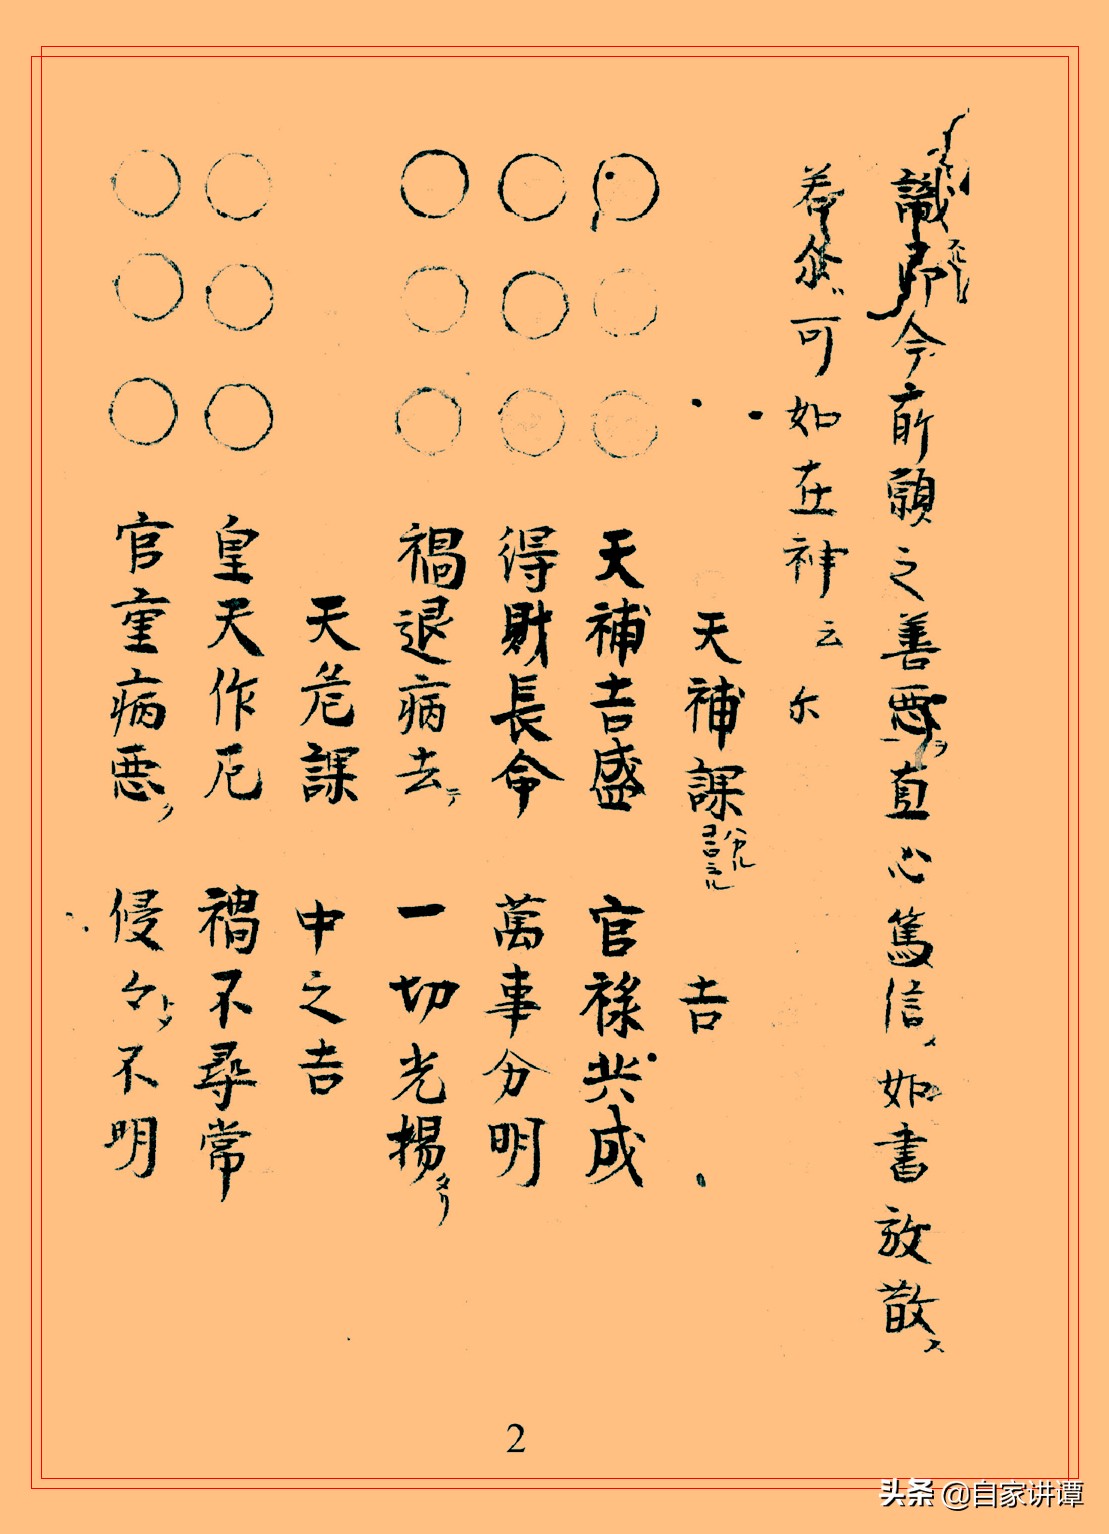 識即今所願之善惡直心篤信如書放散
卷然可如在神云尔
天補課 吉
天補吉盛 官禄共成
得財長命 萬事分明
禍退病去 一切光揚
天危課 中之吉
皇天作厄 禍不尋常
官重病悪 侵々不明
2
头条 @自家讲谭